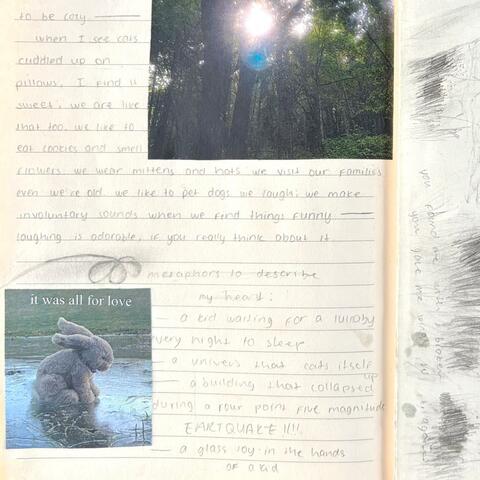 to be cozy —
when I see cats
cuddled up on
pillows, I find it
sweet, we are like
that too. we like to
eat cookies and smell
flowers we wear mittens and hats we visit our families
even we're old we like to pet dogs we laugh; we make
involuntary sounds when we find things funny —
laughing is adorable, if you really think about it
metaphors to describe
my heart:
it was all for love
— a kid waiting for a lullaby
every night to sleep
— a univers that eats itself
up
— a building that collapsed
during a four point five magnitude
EARTQUAKE !!!!
— a glass toy in the hands
of a kid
you found me
you gave me